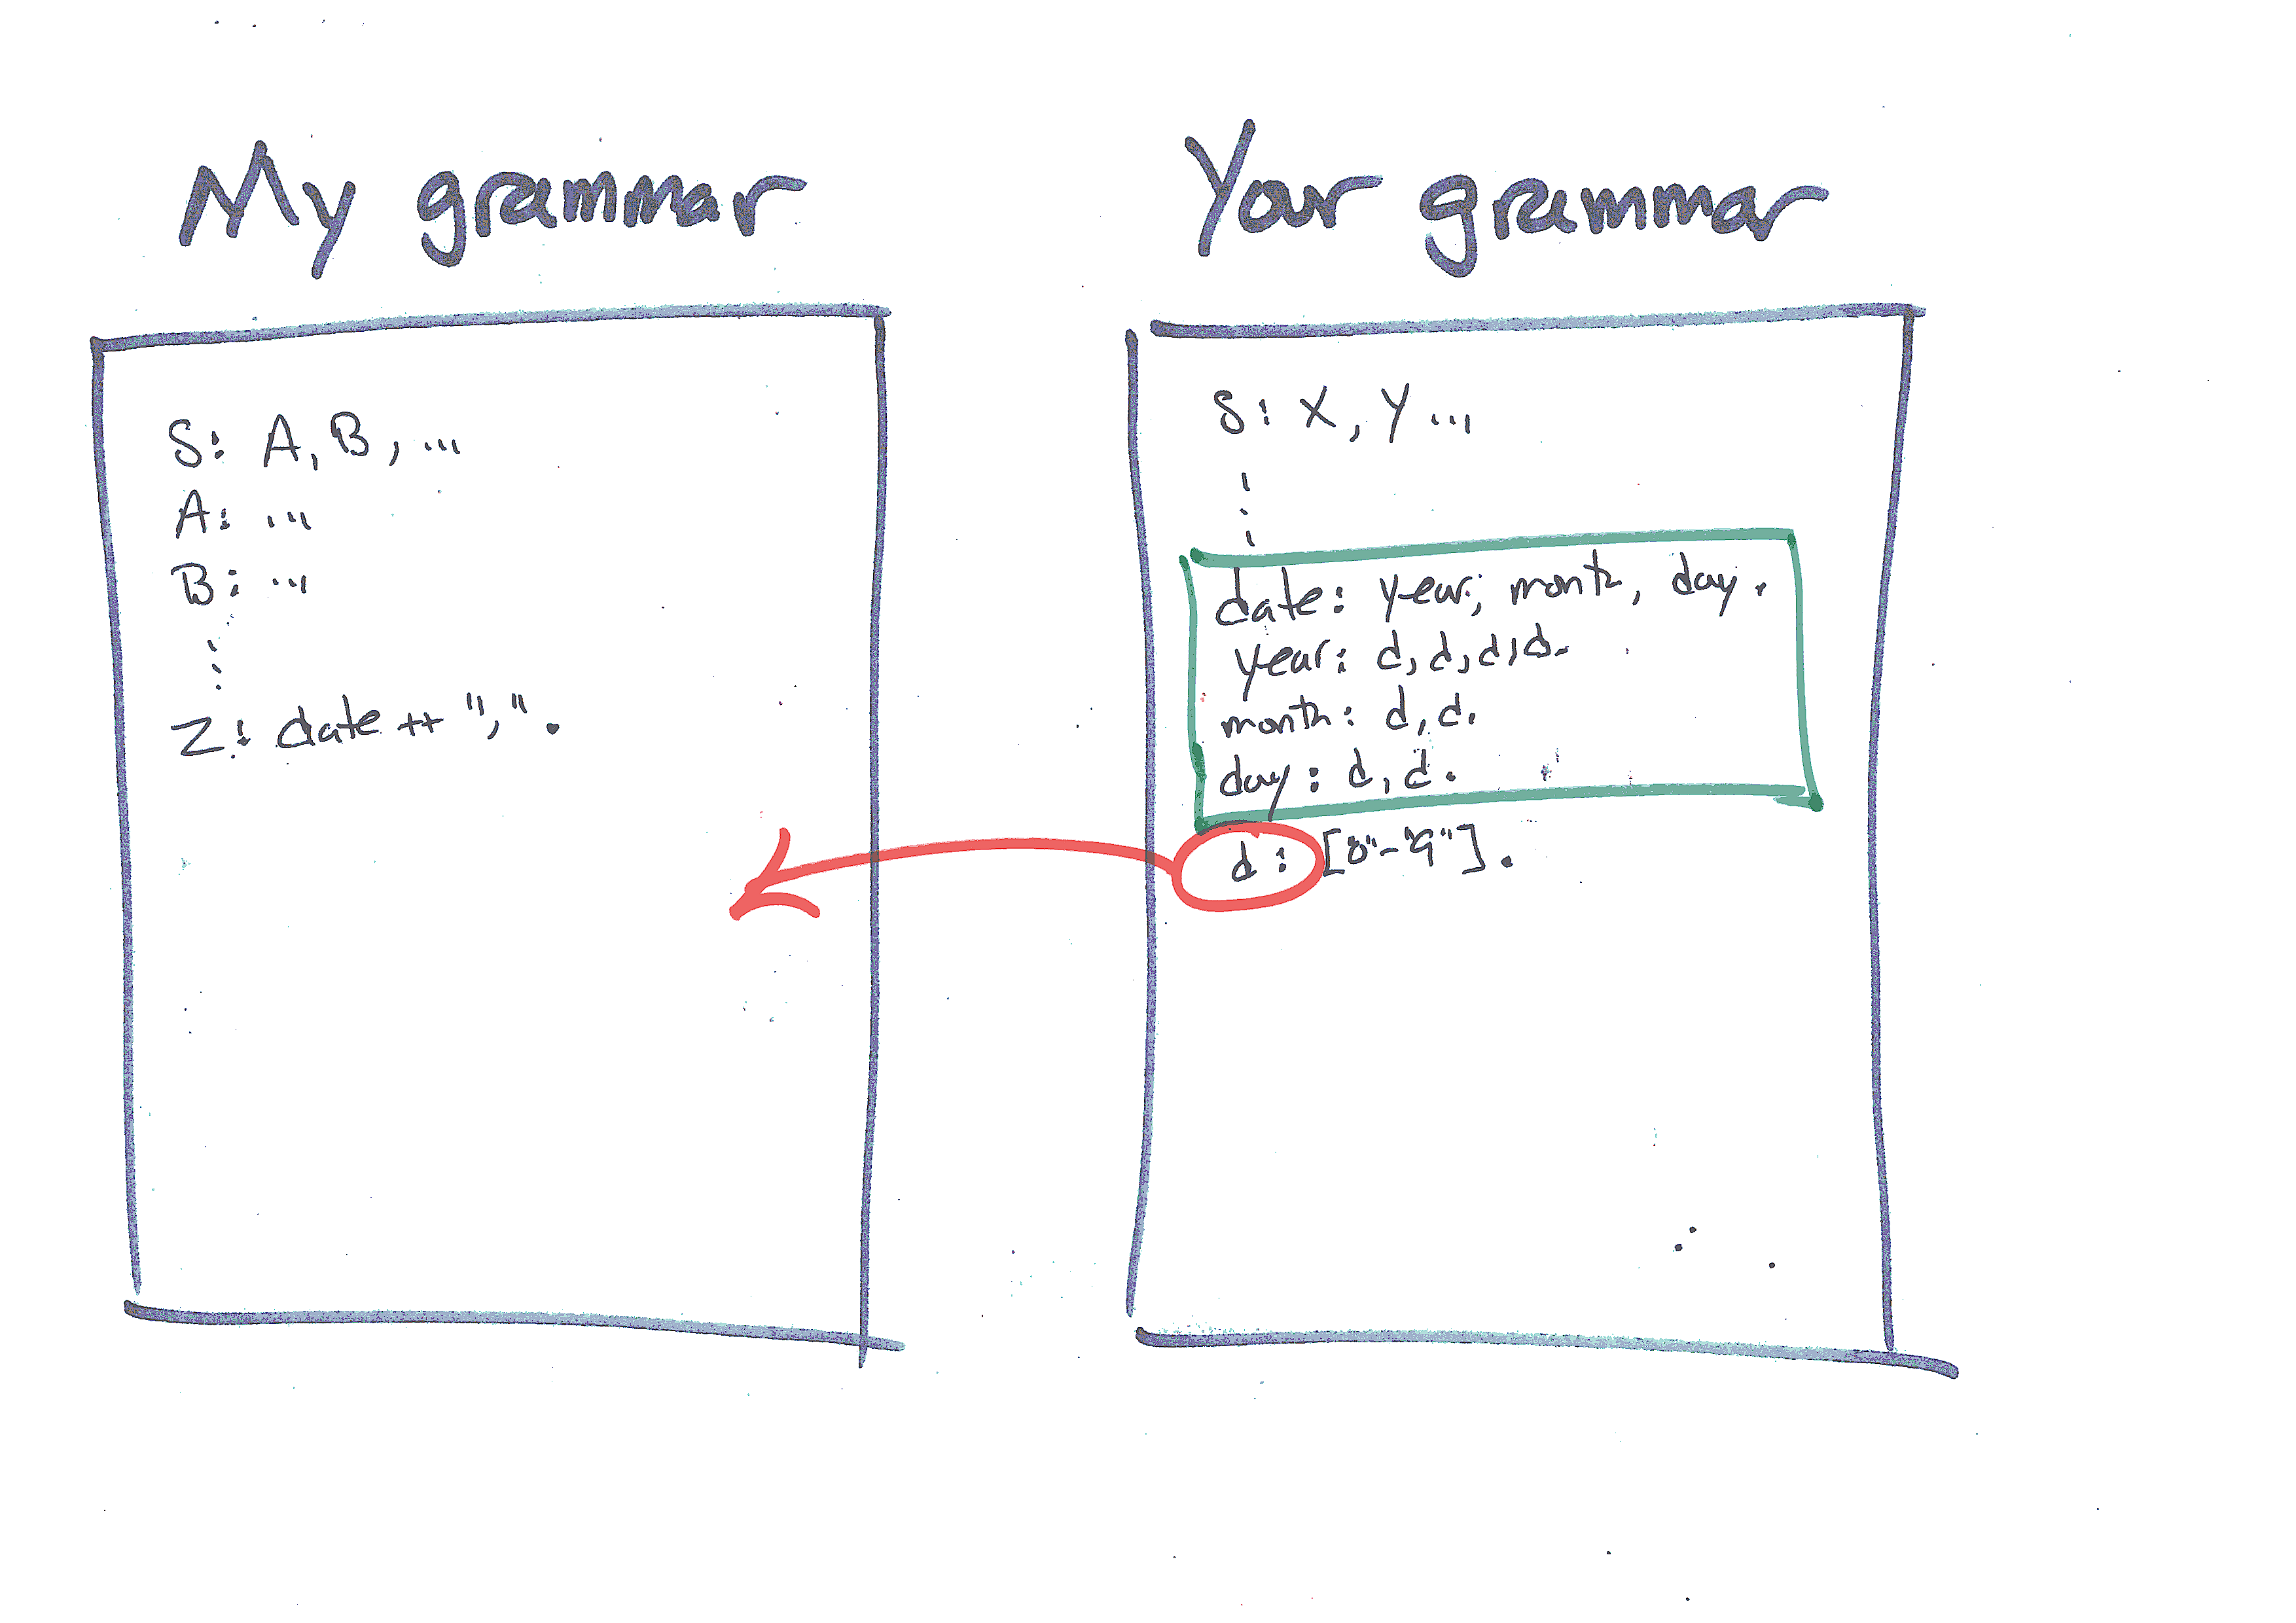 My grammar
S: A, B, ...
A: ...
B: ...
⋮
Z: date ++ ",".
Your grammar
S: X, Y ...
⋮
date: year, month, day.
year: d, d, d, d.
month: d, d.
day: d, d.
d: ["0"-"9"].